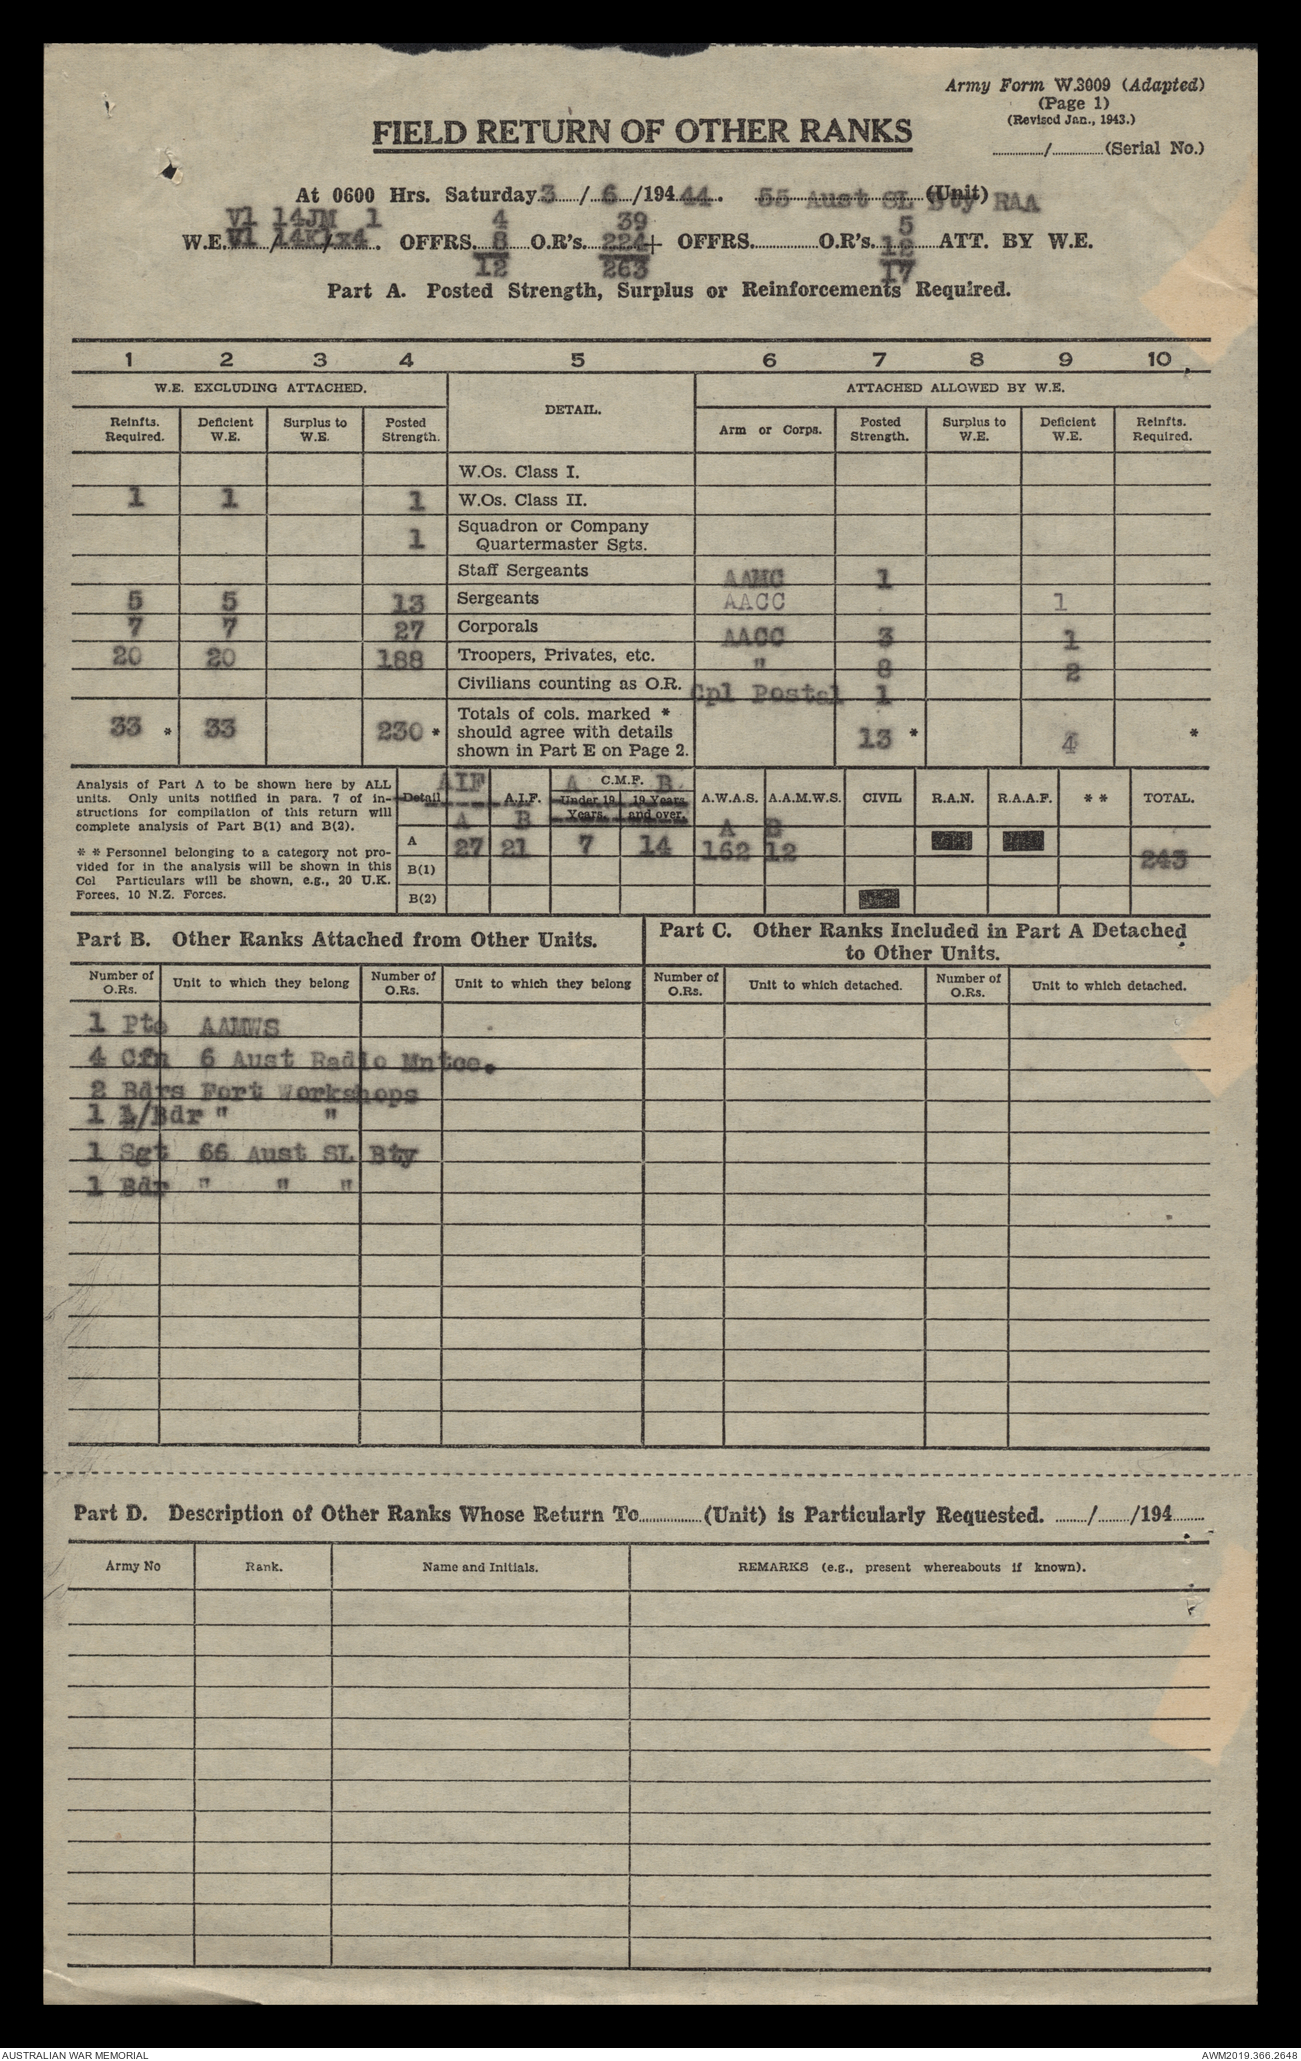 Army Form W.3009 (Adapted)
(Page 1)
(Revised Jan., 1943.)
FIELD RETURN OF OTHER RANKS
........../..........(Serial No.)
At 0600 Hrs. Saturday 3 / 6 /194 44. 55 Aust SL Bty RAA (Unit)
VI 14JM 1 4 39 5
W.E. VI /14K/1x4. OFFRS. 8 O.R's. 224+ OFFRS. O.R's. 12 ATT. BY W.E.
12 263 17
Part A. Posted Strength, Surplus or Reinforcements Required.
1 2 3 4 5 6 7 8 9 10
W.E. EXCLUDING ATTACHED. DETAIL. ATTACHED ALLOWED BY W.E.
Reinfts. Required. Deficient W.E. Surplus to W.E. Posted Strength. Arm or Corps. Posted Strength. Surplus to W.E. Deficient W.E. Reinfts. Required.
W.Os. Class I.
1 1 1 W.Os. Class II.
1 Squadron or Company
Quartermaster Sgts.
Staff Sergeants AAMC 1
5 5 13 Sergeants AACC 1
7 7 27 Corporals AACC 3 1
20 20 188 Troopers, Privates, etc. " 8 2
Civilians counting as O.R. Cpl Postal 1
33 * 33 230 * Totals of cols. marked * should agree with details shown in Part E on Page 2. 13 * 4 *
Analysis of Part A to be shown here by ALL
units. Only units notified in para. 7 of in-
structions for compilation of this return will
complete analysis of Part B(1) and B(2).
* * Personnel belonging to a category not pro-
vided for in the analysis will be shown in this
Col Particulars will be shown, e.g., 20 U.K.
Forces, 10 N.Z. Forces.
AIF A C.M.F. B
Detail A.I.F. Under 19 Years. 19 Years and over. A.W.A.S. A.A.M.W.S. CIVIL R.A.N. R.A.A.F. * * TOTAL.
A B A B
A 27 21 7 14 162 12 243
B(1)
B(2)
Part B. Other Ranks Attached from Other Units.
Part C. Other Ranks Included in Part A Detached
to Other Units.
Number of O.Rs. Unit to which they belong Number of O.Rs. Unit to which they belong Number of O.Rs. Unit to which detached. Number of O.Rs. Unit to which detached.
1 Pte AAMWS
4 Cfn 6 Aust Radio Mntce.
2 Bdrs Fort Workshops
1 L/Bdr " "
1 Sgt 66 Aust SL Bty
1 Bdr " " "
Part D. Description of Other Ranks Whose Return To..........(Unit) is Particularly Requested. ....../....../194......
Army No Rank. Name and Initials. REMARKS (e.g., present whereabouts if known).
AUSTRALIAN WAR MEMORIAL AWM2019.366.2648